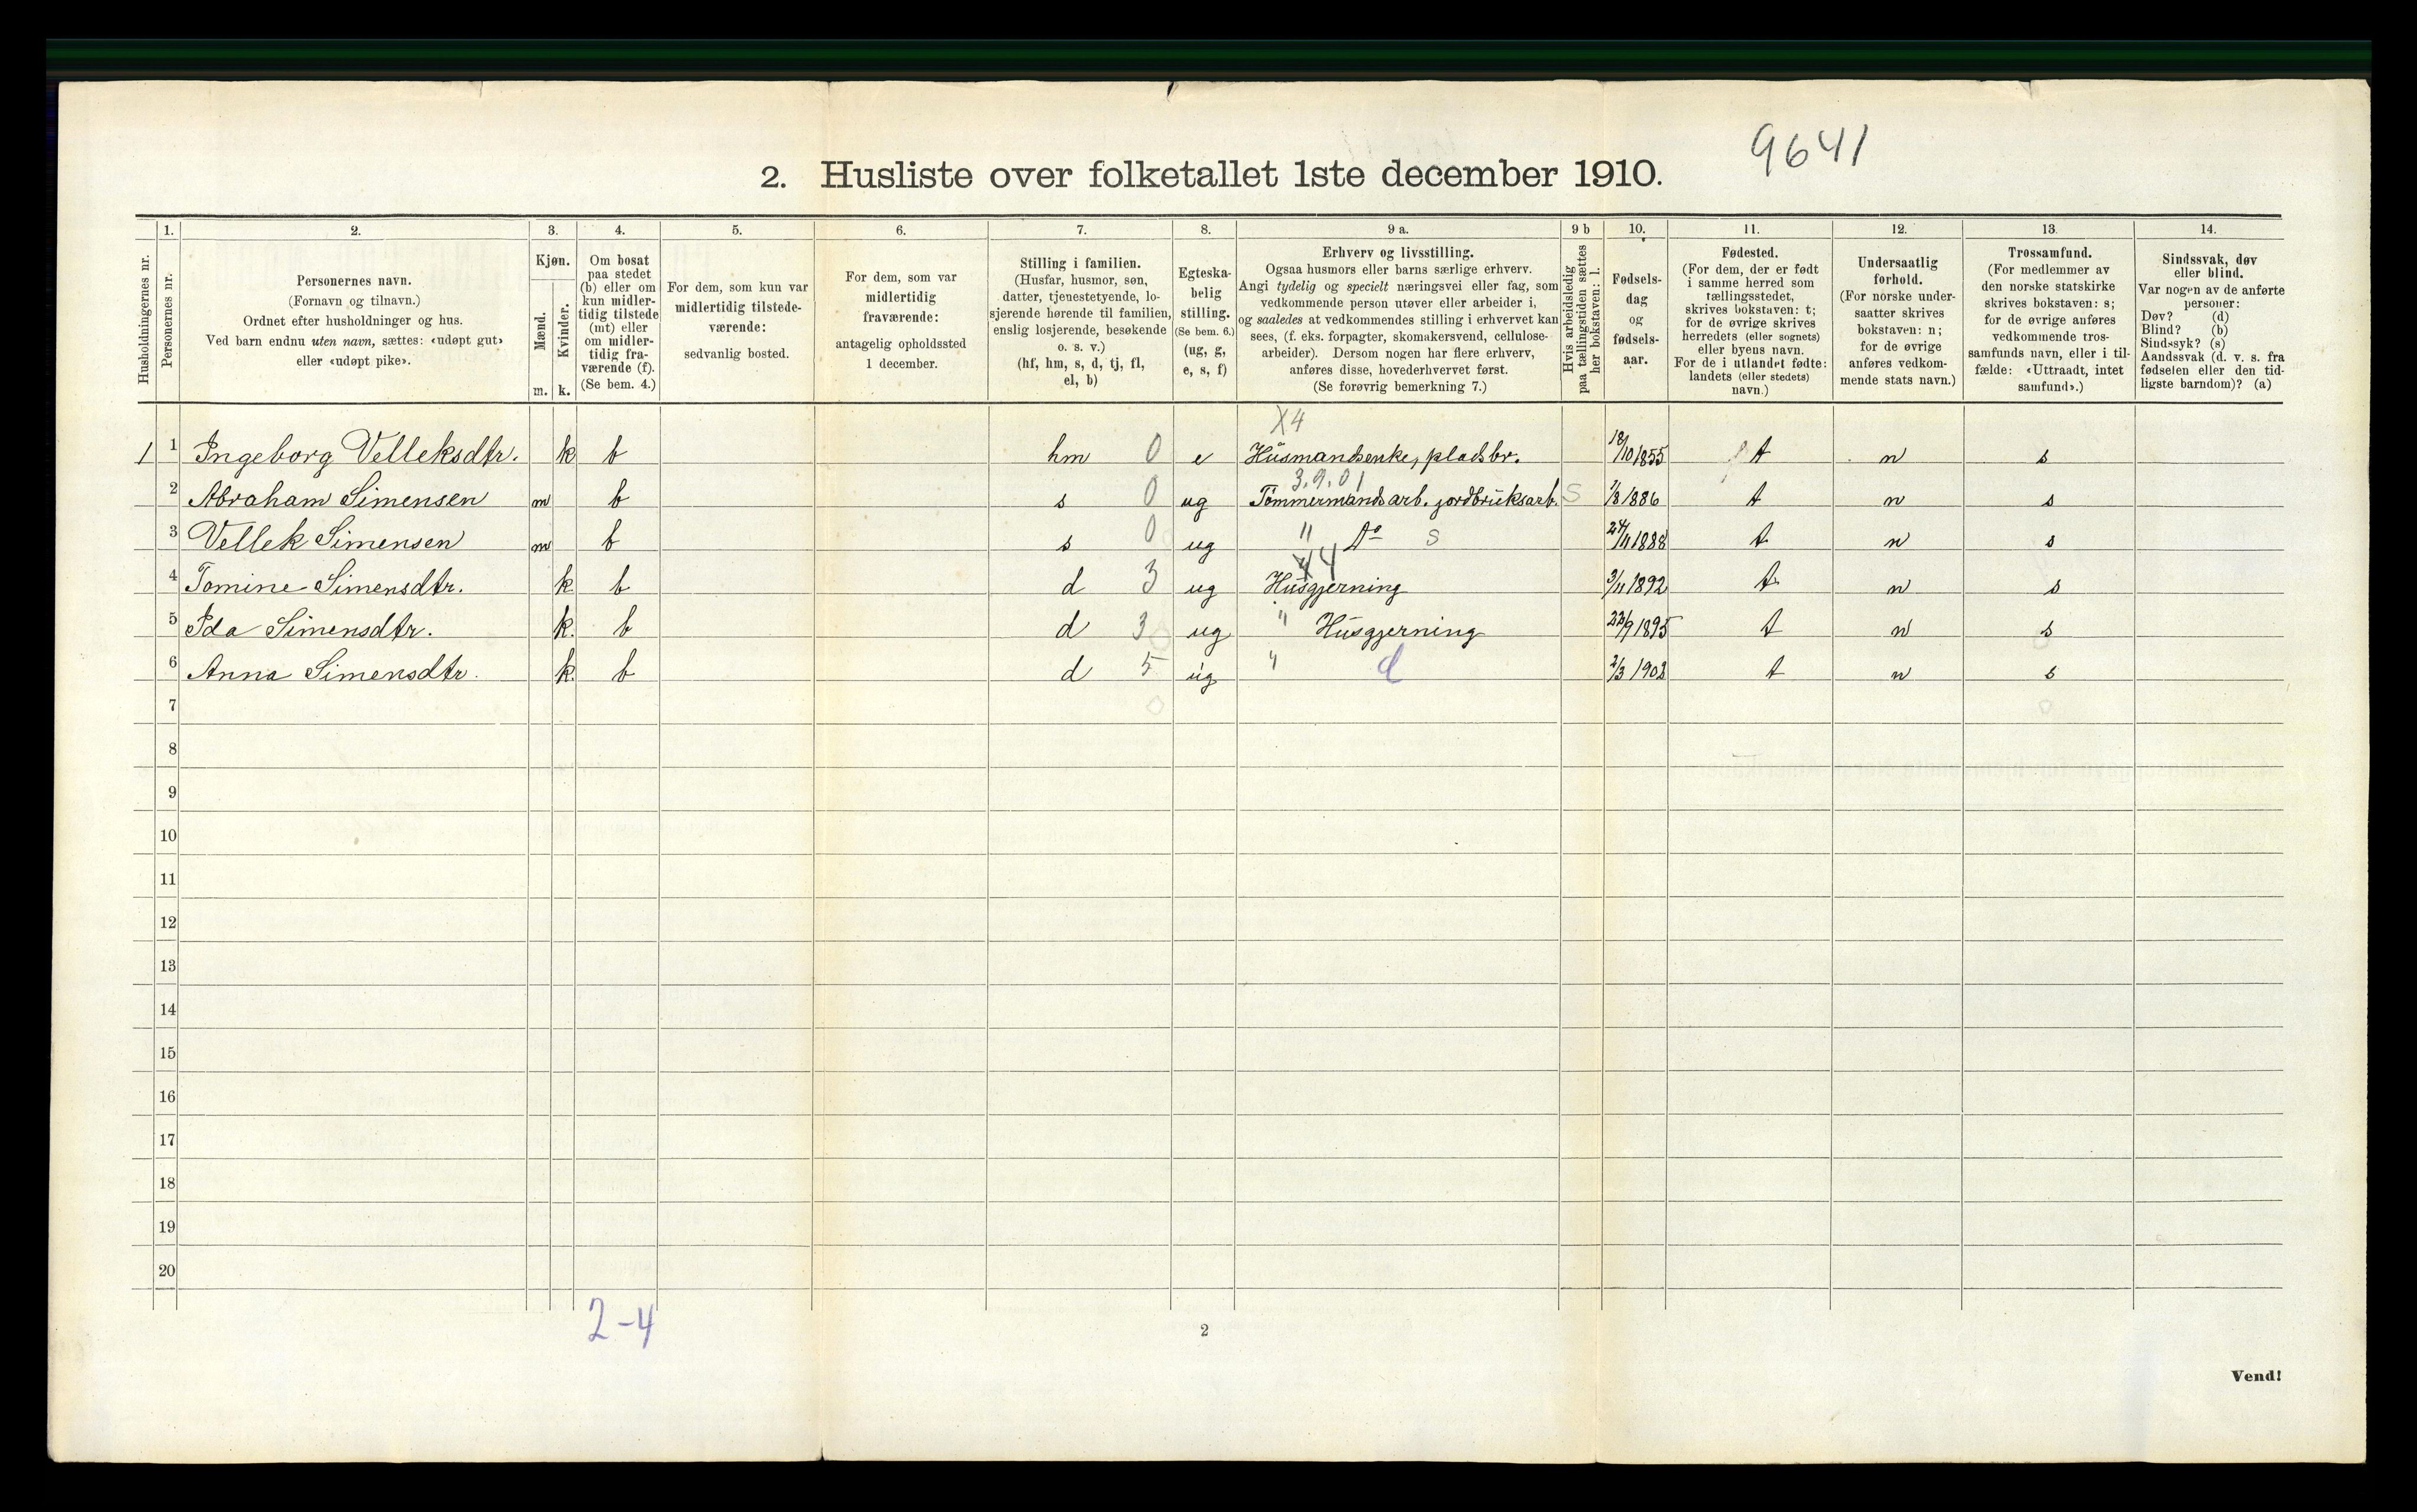 9641
2. Husliste over folketallet 1ste december 1910.
Husholdningernes nr.
1.
Personernes nr.
2.
Personernes navn.
(Fornavn og tilnavn.)
Ordnet efter husholdninger og hus.
Ved barn endnu uten navn, sættes: «udøpt gut»
eller «udøpt pike».
3.
Kjøn.
Mænd.
Kvinder.
m. k.
4.
Om bosat
paa stedet
(b) eller om
kun midler-
tidig tilstede
(mt) eller
om midler-
tidig fra-
værende (f).
(Se bem. 4.)
5.
For dem, som kun var
midlertidig tilstede-
værende:
sedvanlig bosted.
6.
For dem, som var
midlertidig
fraværende:
antagelig opholdssted
1 december.
7.
Stilling i familien.
(Husfar, husmor, søn,
datter, tjenestetyende, lo-
sjerende hørende til familien,
enslig losjerende, besøkende
o. s. v.)
(hf, hm, s, d, tj, fl,
el, b)
8.
Egteska-
belig
stilling.
(Se bem. 6.)
(ug, g,
e, s, f)
9 a.
Erhverv og livsstilling.
Ogsaa husmors eller barns særlige erhverv.
Angi tydelig og specielt næringsvei eller fag, som
vedkommende person utøver eller arbeider i,
og saaledes at vedkommendes stilling i erhvervet kan
sees, (f. eks. forpagter, skomakersvend, cellulose-
arbeider). Dersom nogen har flere erhverv,
anføres disse, hovederhvervet først.
(Se forøvrig bemerkning 7.)
9 b
Hvis arbeidsledig
paa tællingstiden sættes
her bokstaven: l.
10.
Fødsels-
dag
og
fødsels-
aar.
11.
Fødested.
(For dem, der er født
i samme herred som
tællingsstedet,
skrives bokstaven: t;
for de øvrige skrives
herredets (eller sognets)
eller byens navn.
For de i utlandet fødte:
landets (eller stedets)
navn.)
12.
Undersaatlig
forhold.
(For norske under-
saatter skrives
bokstaven: n;
for de øvrige
anføres vedkom-
mende stats navn.)
13.
Trossamfund.
(For medlemmer av
den norske statskirke
skrives bokstaven: s;
for de øvrige anføres
vedkommende tros-
samfunds navn, eller i til-
fælde: «Uttraadt, intet
samfund».)
14.
Sindssvak, døv
eller blind.
Var nogen av de anførte
personer:
Døv? (d)
Blind? (b)
Sindssyk? (s)
Aandssvak (d. v. s. fra
fødselen eller den tid-
ligste barndom)? (a)
X4
1 1 Ingeborg Velleksdtr. k b hm 0 e Husmandsenke, pladsbr. 18/10 1855 t n s
3.9.01
2 Abraham Simensen m b s 0 ug Tømmermandsarb. jordbruksarb. S 1/8 1886 t n s
3 Vellek Simensen m b s 0 ug " do s 24/11 1888 t n s
X4
4 Tomine Simensdtr. k b d 3 ug Husgjerning 3/11 1892 t n s
5 Ida Simensdtr. k. b d 3 ug " Husgjerning 22/9 1895 t n s
6 Anna Simensdtr. k. b d 5 ug " 2/3 1902 t n s
7
8
9
10
11
12
13
14
15
16
17
18
19
20
2-4
2
Vend!